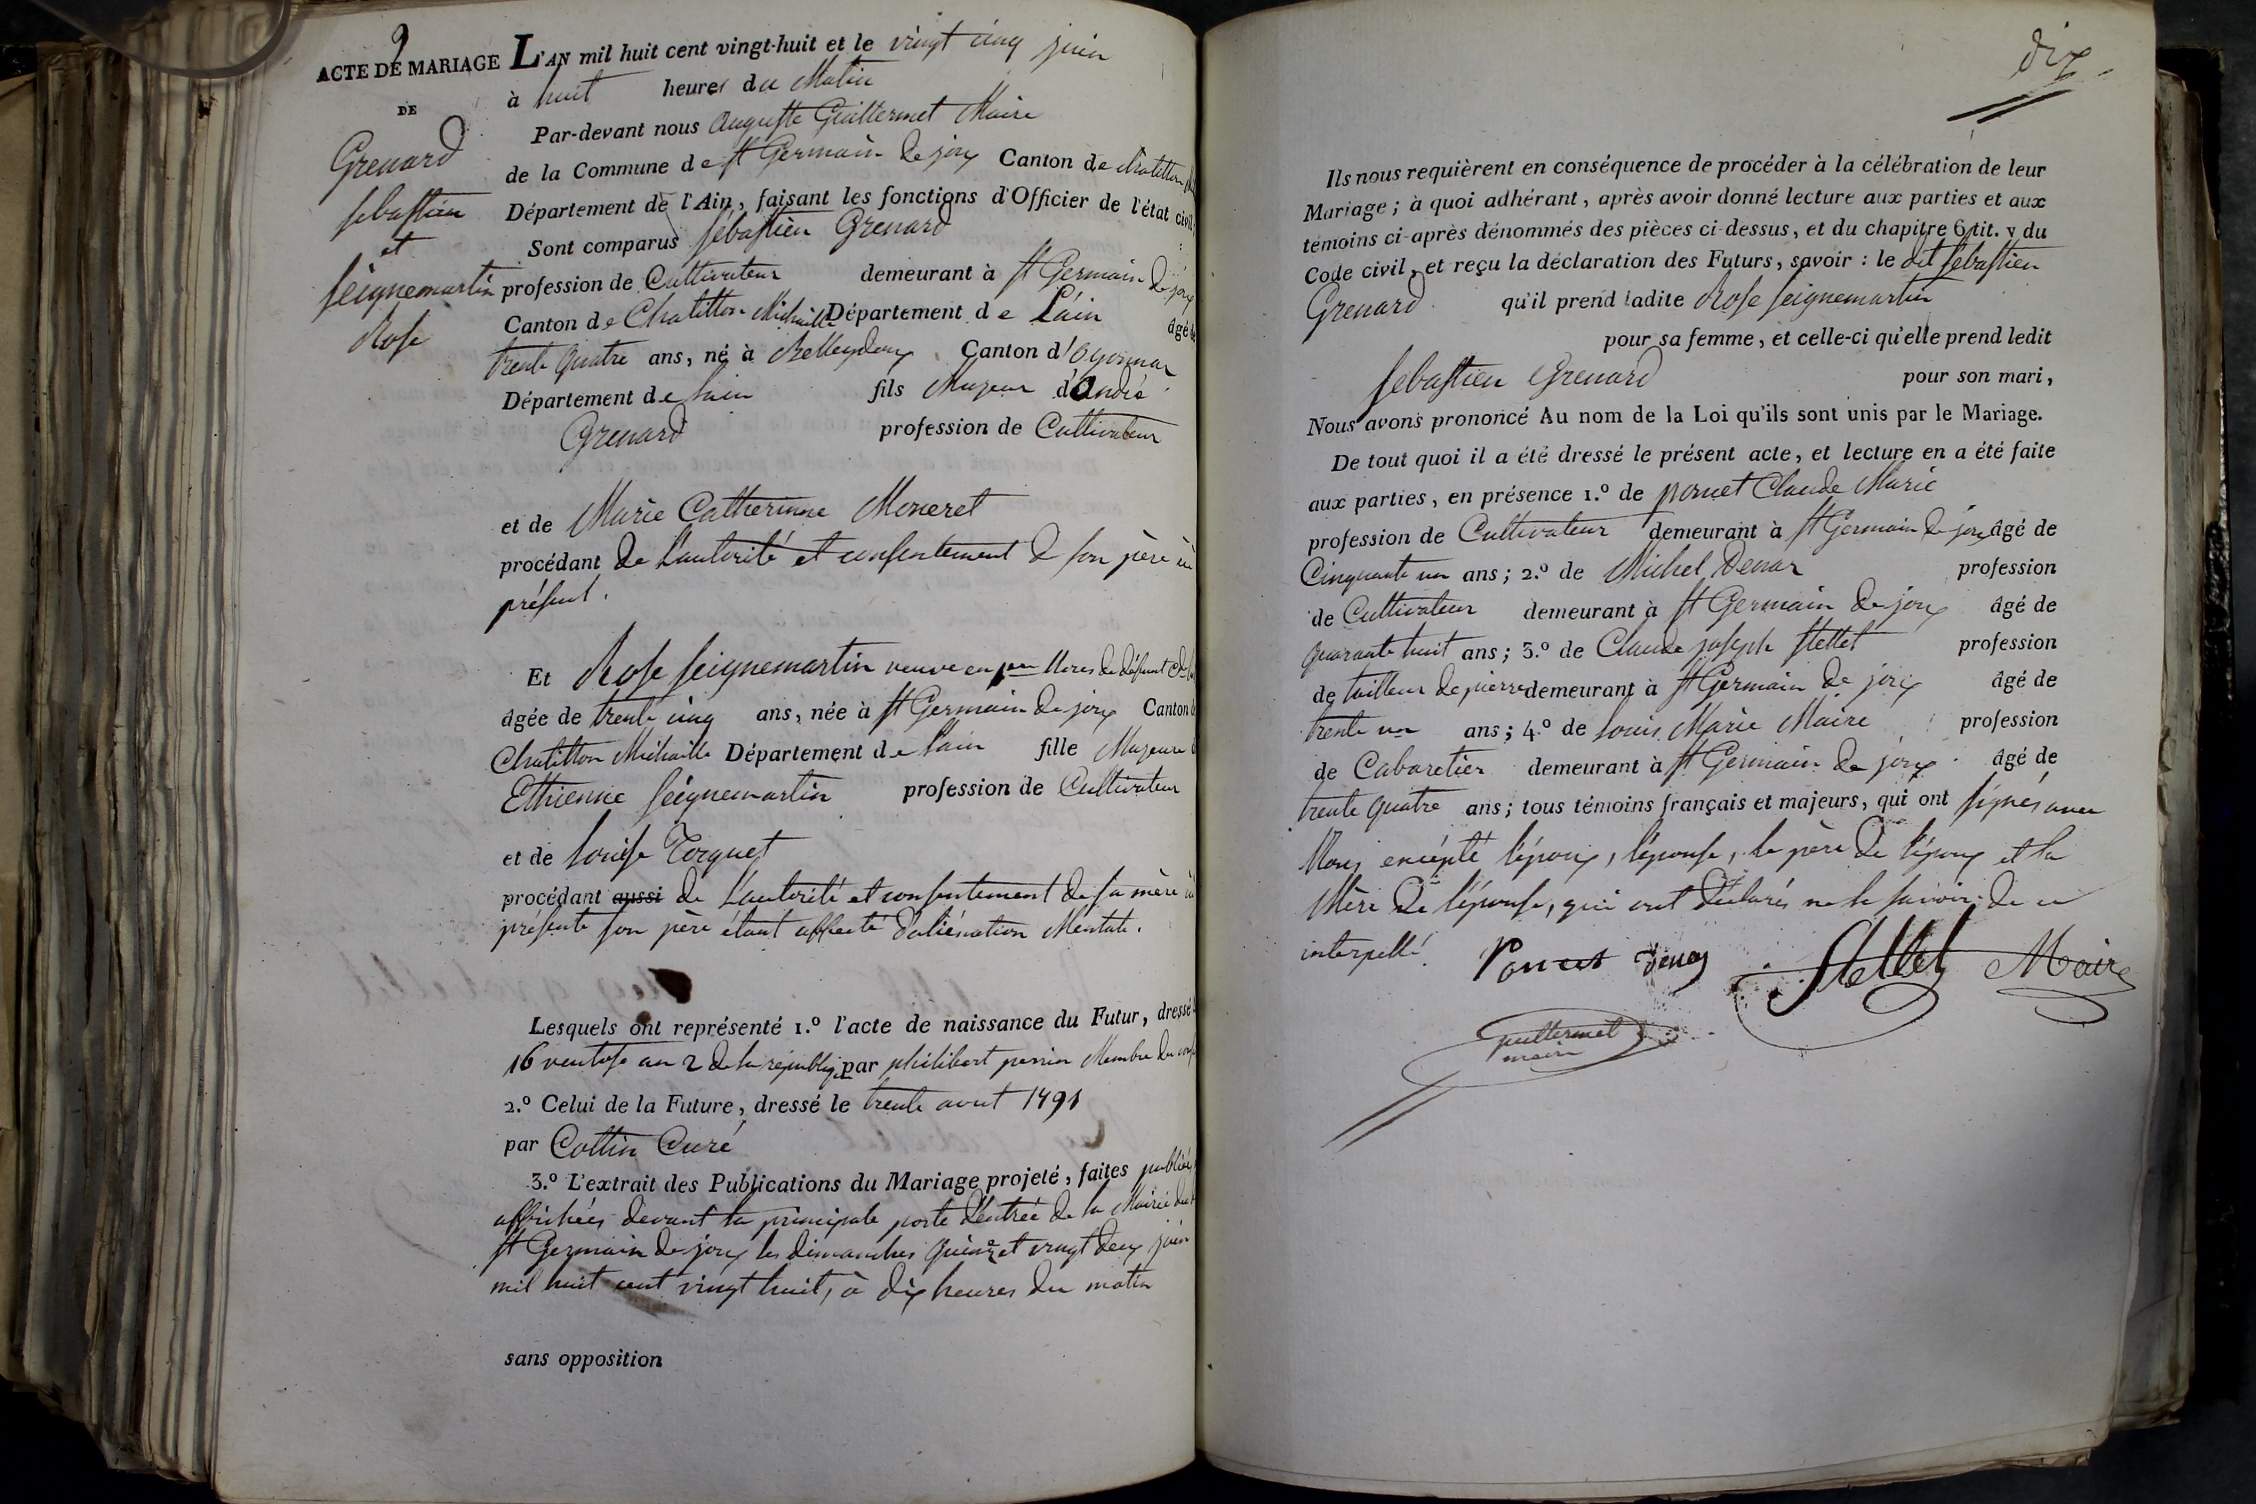 9
ACTE DE MARIAGE
DE
Grenard
sebastien
et
seignemartin
Rose
L'AN mil huit cent vingt-huit et le vingt cinq juin
à huit heures du Matin
Par-devant nous Auguste Guillermet Maire
de la Commune de st Germain de joux Canton de chatillon
Département de l'Ain, faisant les fonctions d'Officier de l'état civil,
Sont comparus sébastien Grenard
profession de Cultivateur demeurant à st Germain de joux
Canton de Chatillon Michaille Département de L'ain âgé de
trente quatre ans, né à Belleydoux Canton d'Oyonnax
Département de l'ain fils Majeur d'André
Grenard profession de Cultivateur
et de Marie Catherinne Moneret
procédant de L'autorité et consentement de son père ici
présent.
Et Rose seignemartin veuve en de défunt
âgée de trente cinq ans, née à st Germain de joux Canton de
Chatillon Michaille Département de l'ain fille Majeure d
Ethienne seignemartin profession de Cultivateur
et de Louise Torquet
procédant aussi de L'autorité et consentement de sa mère ici
présente son père étant affecté d'aliénation Mentale.
Lesquels ont représenté 1.º l'acte de naissance du Futur, dressé le
16 ventose an 2 de la républiq. par philibert perrin Membre du
2.º Celui de la Future, dressé le trente aout 1791
par Collin Curé
3.º L'extrait des Publications du Mariage projeté, faites publiées
affichées devant la principale porte d'entrée de la Mairie
st Germain de joux les dimanches quinze et vingt deux juin
mil huit cent vingt huit, à dix heures du matin
sans opposition
dix
Ils nous requièrent en conséquence de procéder à la célébration de leur
Mariage; à quoi adhérant, après avoir donné lecture aux parties et aux
témoins ci-après dénommés des pièces ci-dessus, et du chapitre 6 tit. v du
Code civil, et reçu la déclaration des Futurs, savoir : le dit sebastien
Grenard qu'il prend ladite Rose seignemartin
pour sa femme, et celle-ci qu'elle prend ledit
sebastien Grenard pour son mari,
Nous avons prononcé Au nom de la Loi qu'ils sont unis par le Mariage.
De tout quoi il a été dressé le présent acte, et lecture en a été faite
aux parties, en présence 1.º de poncet Claude Marie
profession de Cultivateur demeurant à st Germain de joux âgé de
Cinquante un ans; 2.º de Michel profession
de Cultivateur demeurant à st Germain de joux âgé de
quarante huit ans; 3.º de Claude joseph stellet profession
de tailleur de pierre demeurant à st Germain de joux âgé de
trente un ans; 4.º de Louis Marie Maire profession
de Cabaretier demeurant à st Germain de joux âgé de
trente quatre ans; tous témoins français et majeurs, qui ont signés avec
Nous excepté l'époux, l'épouse, le père de l'époux et la
Mère de l'épouse, qui ont déclarés ne le savoir de ce
interpellé.
Poncet Stellet Maire
guillermet
maire